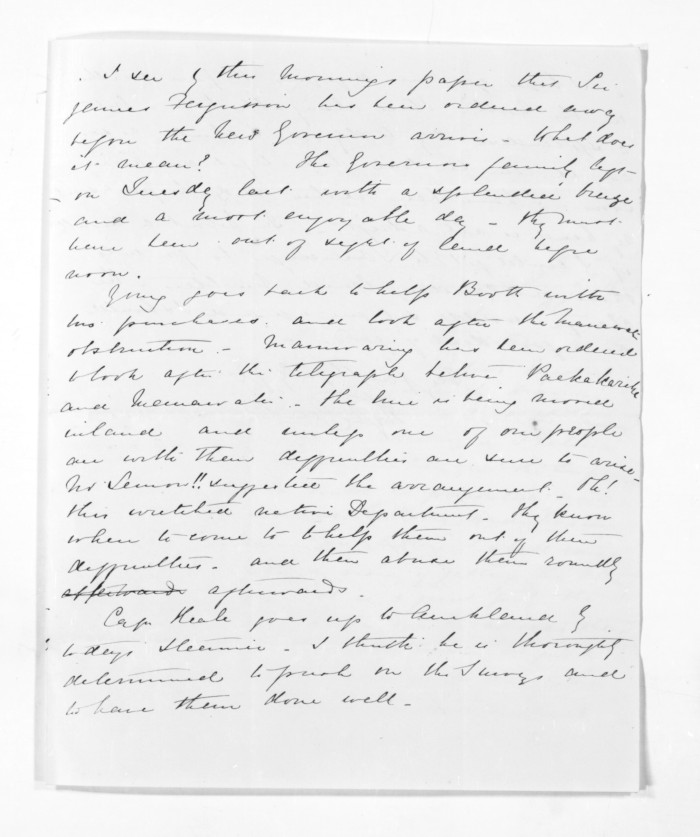 I see by this Mornings paper that Sir
James Fergusson has been ordered away
before the New Governor arrives - What does
it mean? The Governors family left
on Tuesday last with a splendid breeze
and a most enjoyable day - they must
have been out of sight of land before
noon.
Young goes back to help Booth with
his purchases. and look after the Manawatu
obstruction - Mainwaring has been ordered
to look after the telegraph between Paekakariki
and Manawatu - the line is being moved
inland and unless one of our people
are with them difficulties are sure to arise -
Mr Lemon!! suggested the arrangement - Oh!
this wretched native Department - they know
when to come to to help them out of their
difficulties - and then abuse them roundly
afterwards afterwards.
Cap. Heale goes up to Auckland by
to days steamer - I think he is thoroughly
determined to push on the Surveys and
to have them done well -